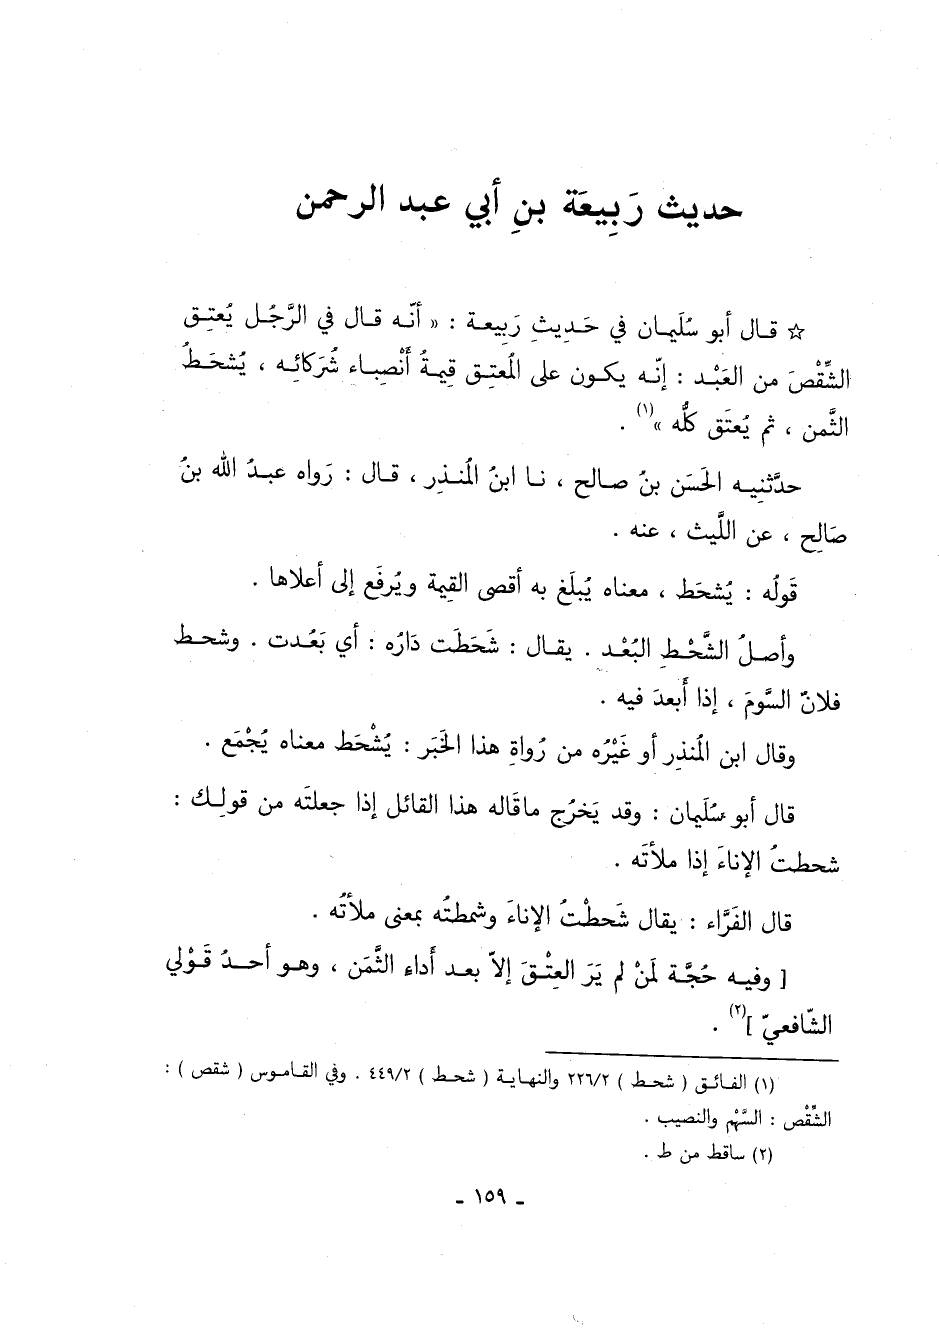 حديث رَبِيعَة بنِ أبي عبد الرحمن
☆ قال أبو سُلَيمان في حَدِيثِ رَبِيعة : « أنّه قال في الرَّجُل يُعتِق
الشِّقْصَ من العَبْد : إنّه يكون على المُعتِق قِيمةُ أَنْصِباء شُرَكائِه ، يُشحَطُ
الثَّمن ، ثم يُعتَق كلُّه »(١) .
حدَّثنِيه الحَسَن بنُ صالح ، نا ابنُ المُنذِر ، قال : رَواه عبدُ الله بنُ
صَالِح ، عن اللَّيث ، عنه .
قَولُه : يُشحَط ، معناه يُبلَغ به أقصى القِيمة ويُرفَع إلى أعلاها .
وأصلُ الشَّحْطِ البُعْد . يقال : شَحَطَت دَارُه : أي بَعُدت . وشحط
فلانٌ السَّومَ ، إذا أَبعدَ فيه .
وقال ابن المُنذِر أو غَيْرُه من رُواةِ هذا الخَبَر : يُشْحَط معناه يُجْمَع .
قال أبو سُلَيمان : وقد يَخرُج ماقَاله هذا القائل إذا جعلتَه من قولِك :
شحطتُ الإناءَ إذا ملأتَه .
قال الفَرَّاء : يقال شَحطْتُ الإناءَ وشمطتُه بمعنى ملأتُه .
[ وفيه حُجَّة لمَنْ لم يَرَ العِتْقَ إلاّ بعد أداء الثَّمَن ، وهو أحدُ قَوْلي
الشّافعيّ ](٢) .
(١) الفائق ( شحط ) ٢٢٦/٢ والنهاية ( شحط ) ٤٤٩/٢ . وفي القاموس ( شقص ) :
الشِّقْص : السَّهْم والنصيب .
(٢) ساقط من ط .
- ١٥٩ -